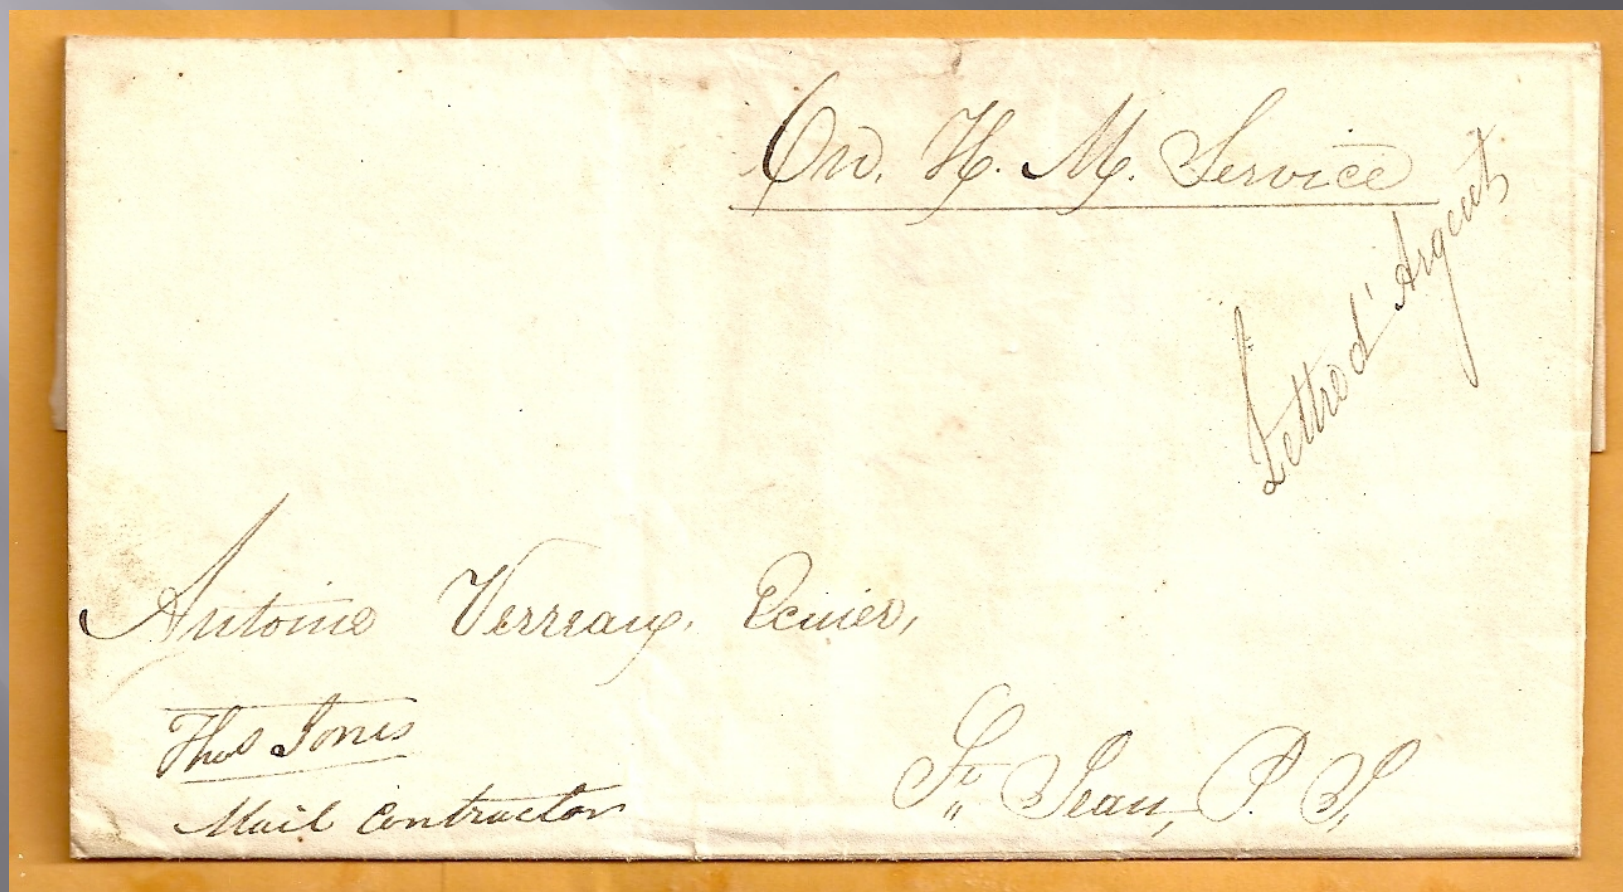 On. H. M. Service
Lettre d'Argent
Antoine Verreaux. Ecuier,
Thos Jones
Mail Contractor
St. Jean, P. J,